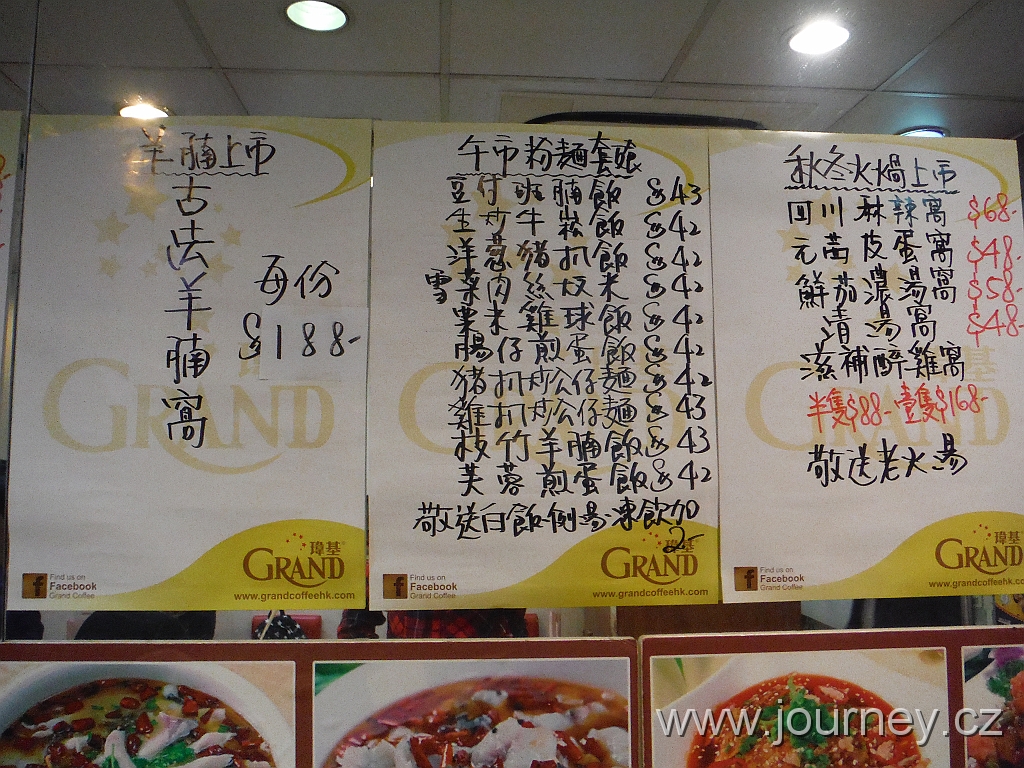 羊腩上市
古法羊腩窩
每份
$188-
GRAND
瑋基
GRAND
Find us on
Facebook
Grand Coffee
www.grandcoffeehk.com
午市粉麵套飯
豆付班腩飯 $43
生炒牛崧飯 $42
洋葱豬扒飯 $42
雪菜肉絲炆米 $42
粟米雞球飯 $42
腸仔煎蛋飯 $42
豬扒炒公仔麵 $42
雞扒炒公仔麵 $43
枝竹羊腩飯 $43
芙蓉煎蛋飯 $42
敬送白飯例湯凍飲加
2-
瑋基
GRAND
Find us on
Facebook
Grand Coffee
www.grandcoffeehk.com
秋冬火煱上市
四川麻辣窩 $68-
元茜皮蛋窩 $48-
鮮茄濃湯窩 $58-
清湯窩 $48-
滋補醉雞窩
半隻$88- 壹隻$168-
敬送老火湯
瑋基
GRAND
Find us on
Facebook
Grand Coffee
www.grandcoffeehk.com
www.journey.cz